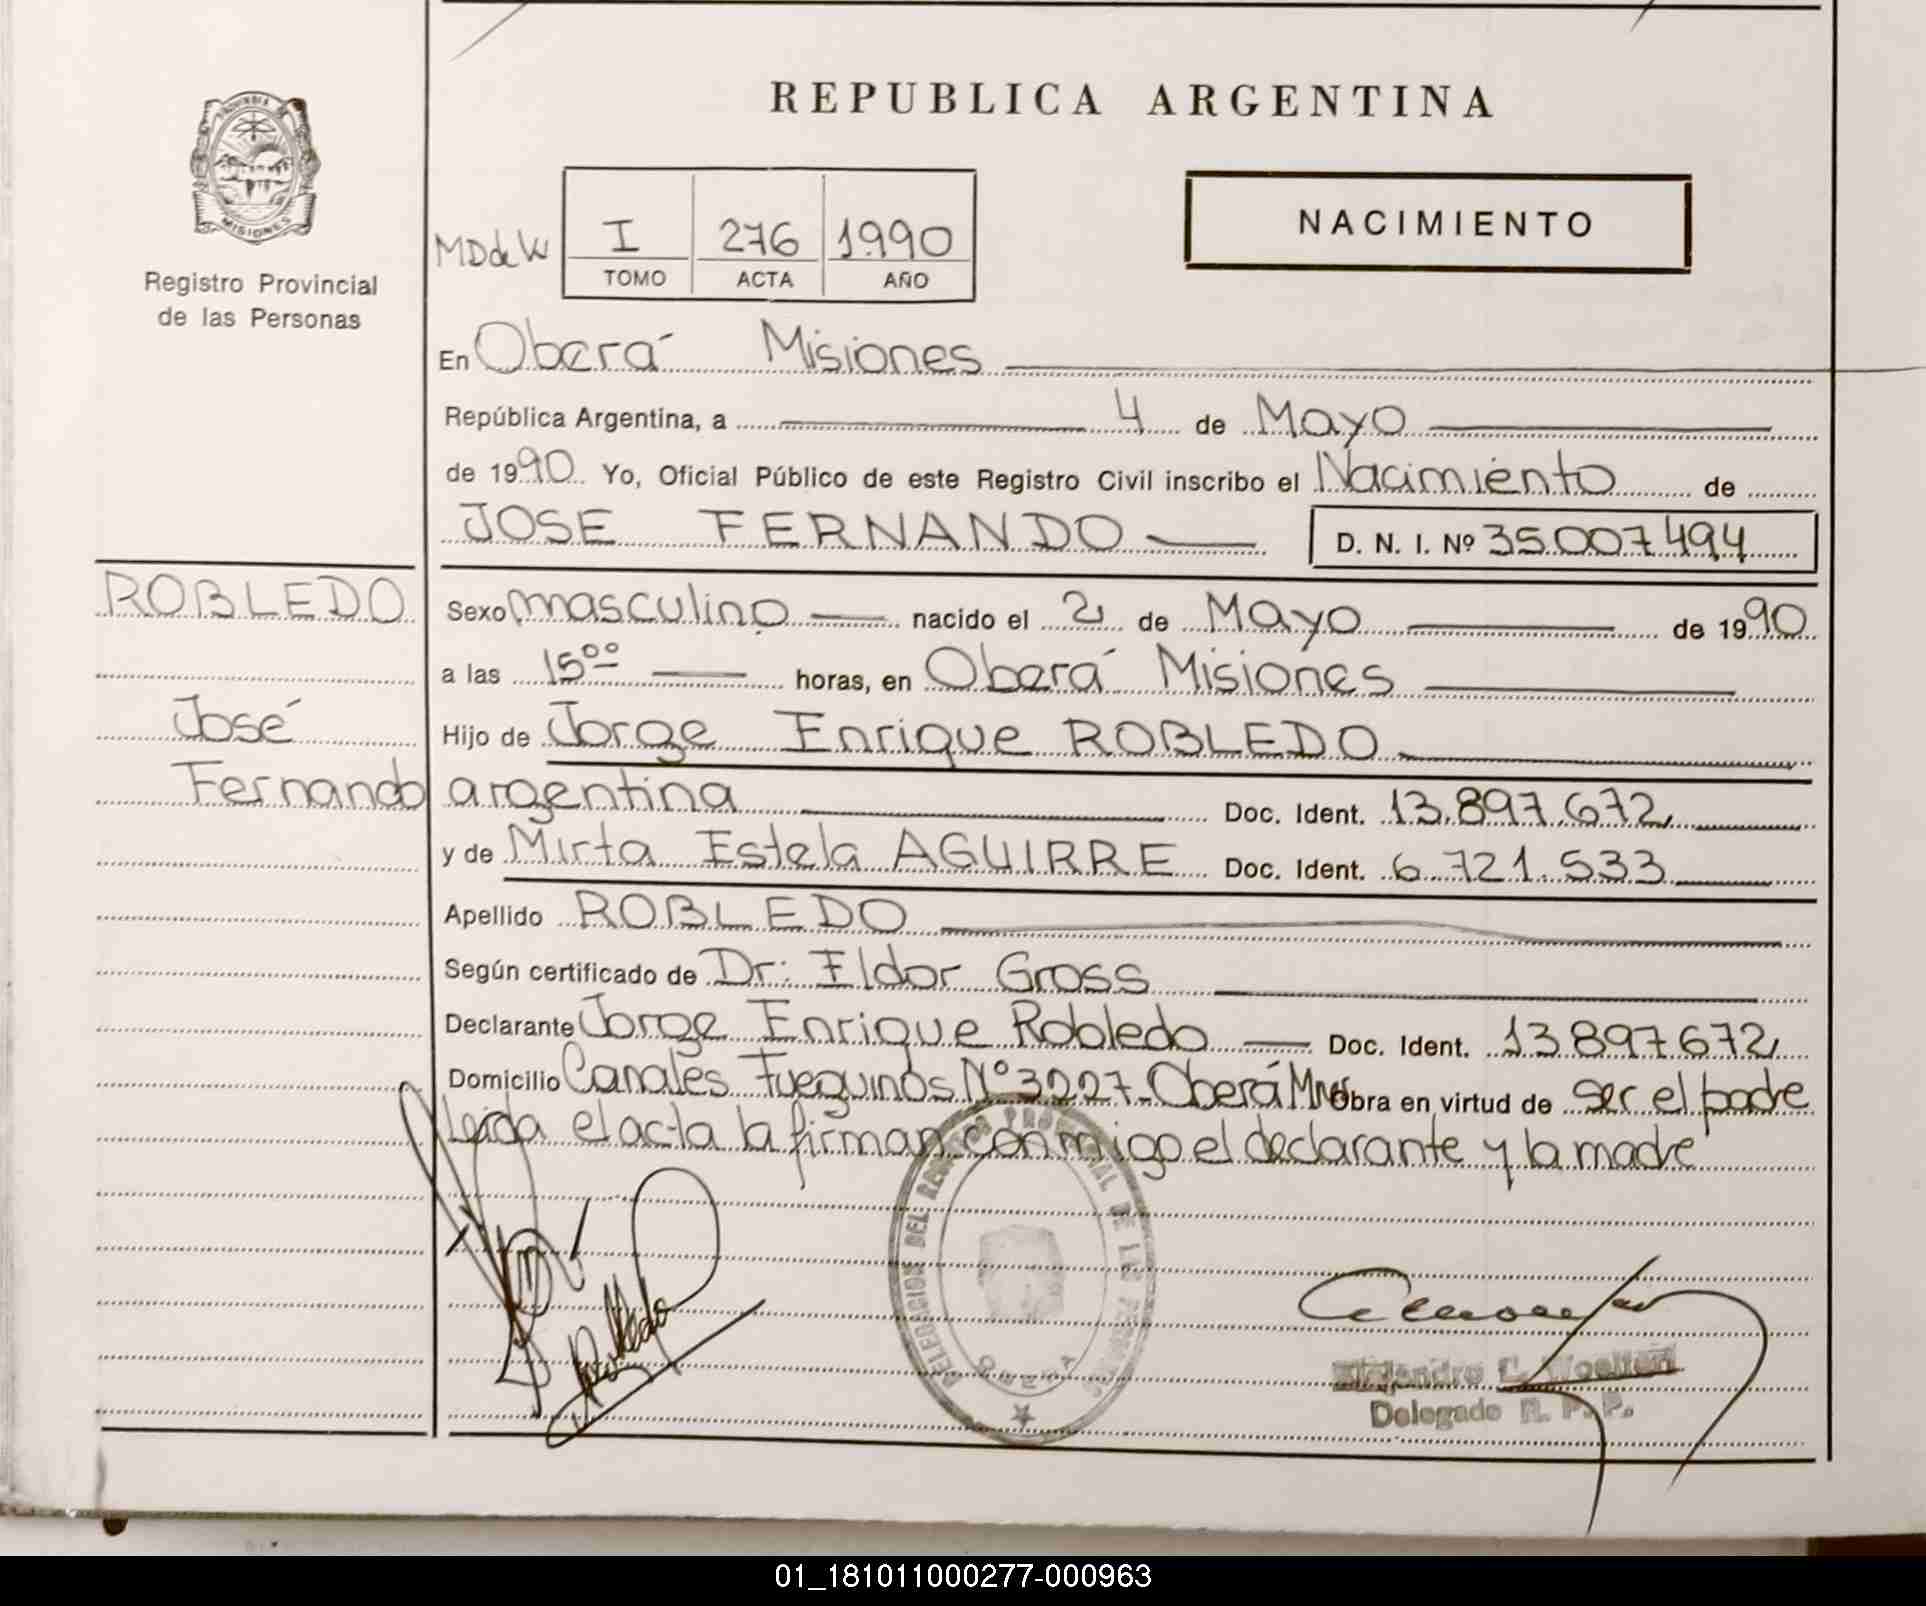 REPUBLICA ARGENTINA
PROVINCIA DE
MISIONES
Registro Provincial
de las Personas
NACIMIENTO
MD de W
I 276 1.990
TOMO ACTA AÑO
En Oberá Misiones
República Argentina, a 4 de Mayo
de 1990 Yo, Oficial Público de este Registro Civil inscribo el Nacimiento de
JOSE FERNANDO D. N. I. Nº 35.007.494
ROBLEDO
José
Fernando
Sexo masculino nacido el 2 de Mayo de 1990
a las 15⁰⁰ horas, en Oberá Misiones
Hijo de Jorge Enrique ROBLEDO
argentina Doc. Ident. 13.897.672
y de Mirta Estela AGUIRRE Doc. Ident. 6.721.533
Apellido ROBLEDO
Según certificado de Dr: Eldor Gross
Declarante Jorge Enrique Robledo Doc. Ident. 13897672
Domicilio Canales Fueguinos Nº 3227-Oberá Mnes Obra en virtud de ser el padre
Leida el acta la firman conmigo el declarante y la madre
DELEGACION DEL REGISTRO PROVINCIAL DE LAS PERSONAS
OBERA
Alejandro
Delegado R. P. P.
01_181011000277-000963